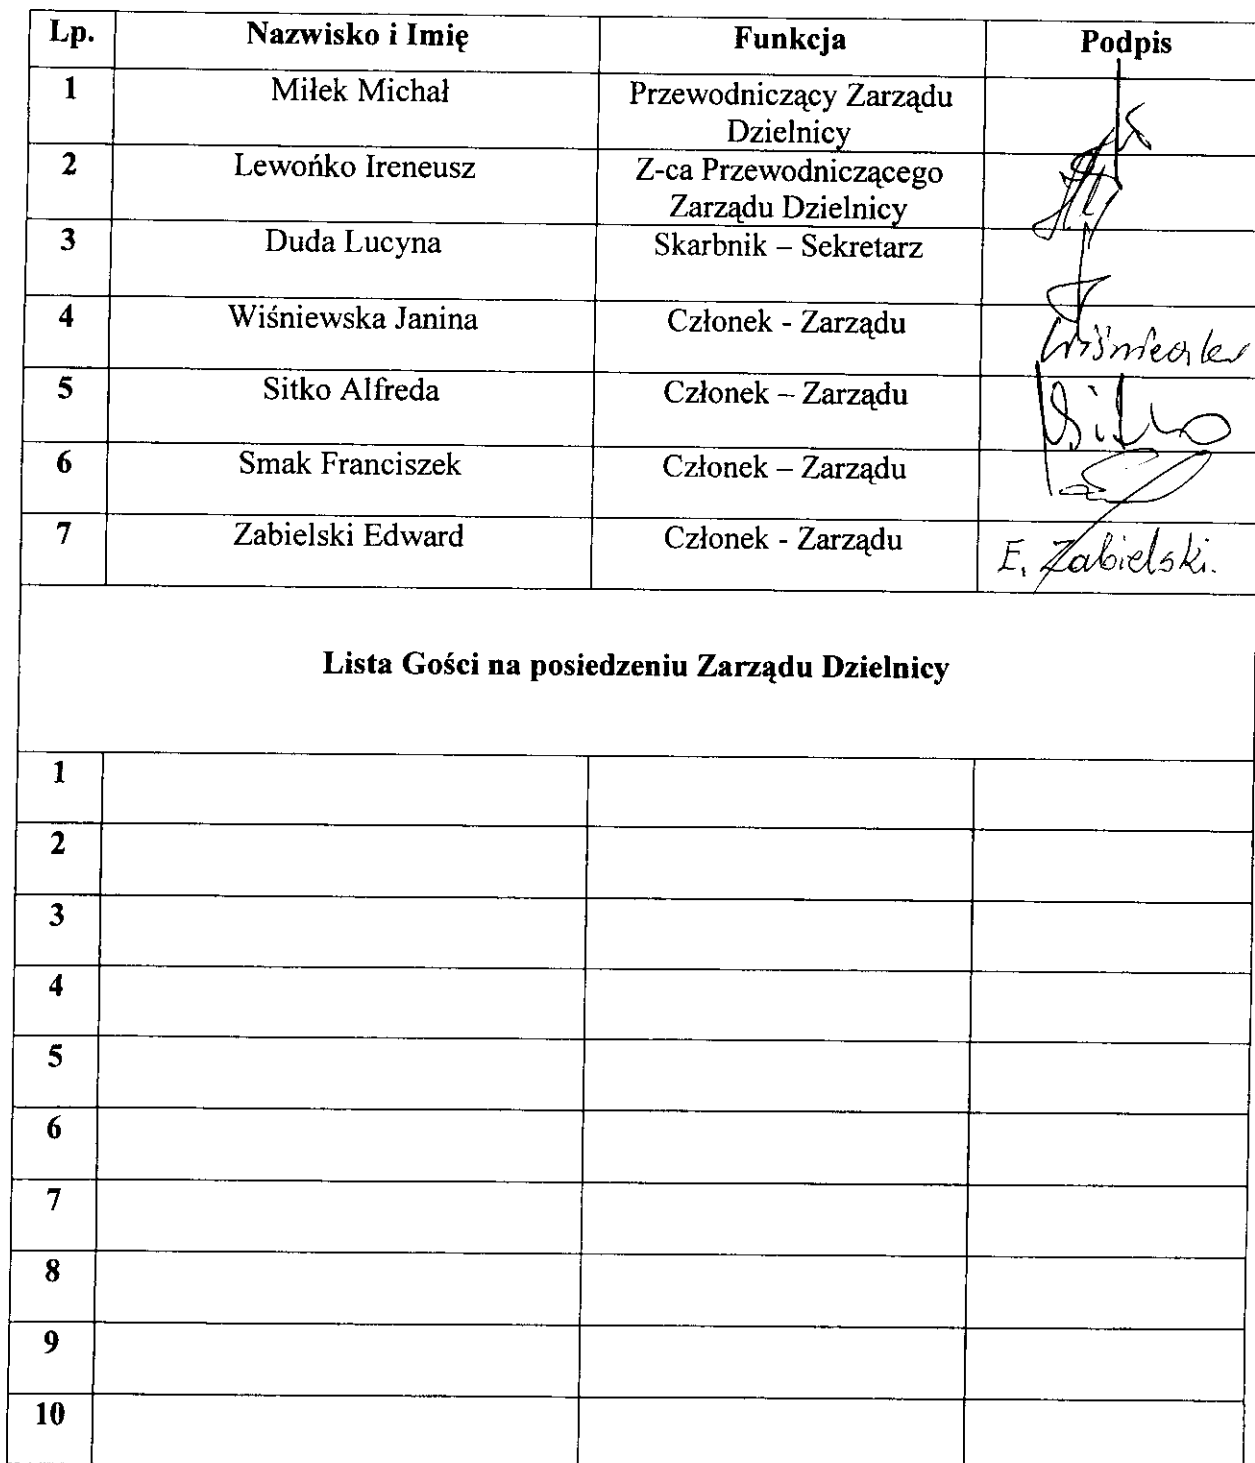 Lp. Nazwisko i Imię Funkcja Podpis
1 Miłek Michał Przewodniczący Zarządu
Dzielnicy
2 Lewońko Ireneusz Z-ca Przewodniczącego
Zarządu Dzielnicy
3 Duda Lucyna Skarbnik – Sekretarz
4 Wiśniewska Janina Członek - Zarządu
5 Sitko Alfreda Członek – Zarządu Sitko
6 Smak Franciszek Członek – Zarządu
7 Zabielski Edward Członek - Zarządu E. Zabielski.
Lista Gości na posiedzeniu Zarządu Dzielnicy
1
2
3
4
5
6
7
8
9
10